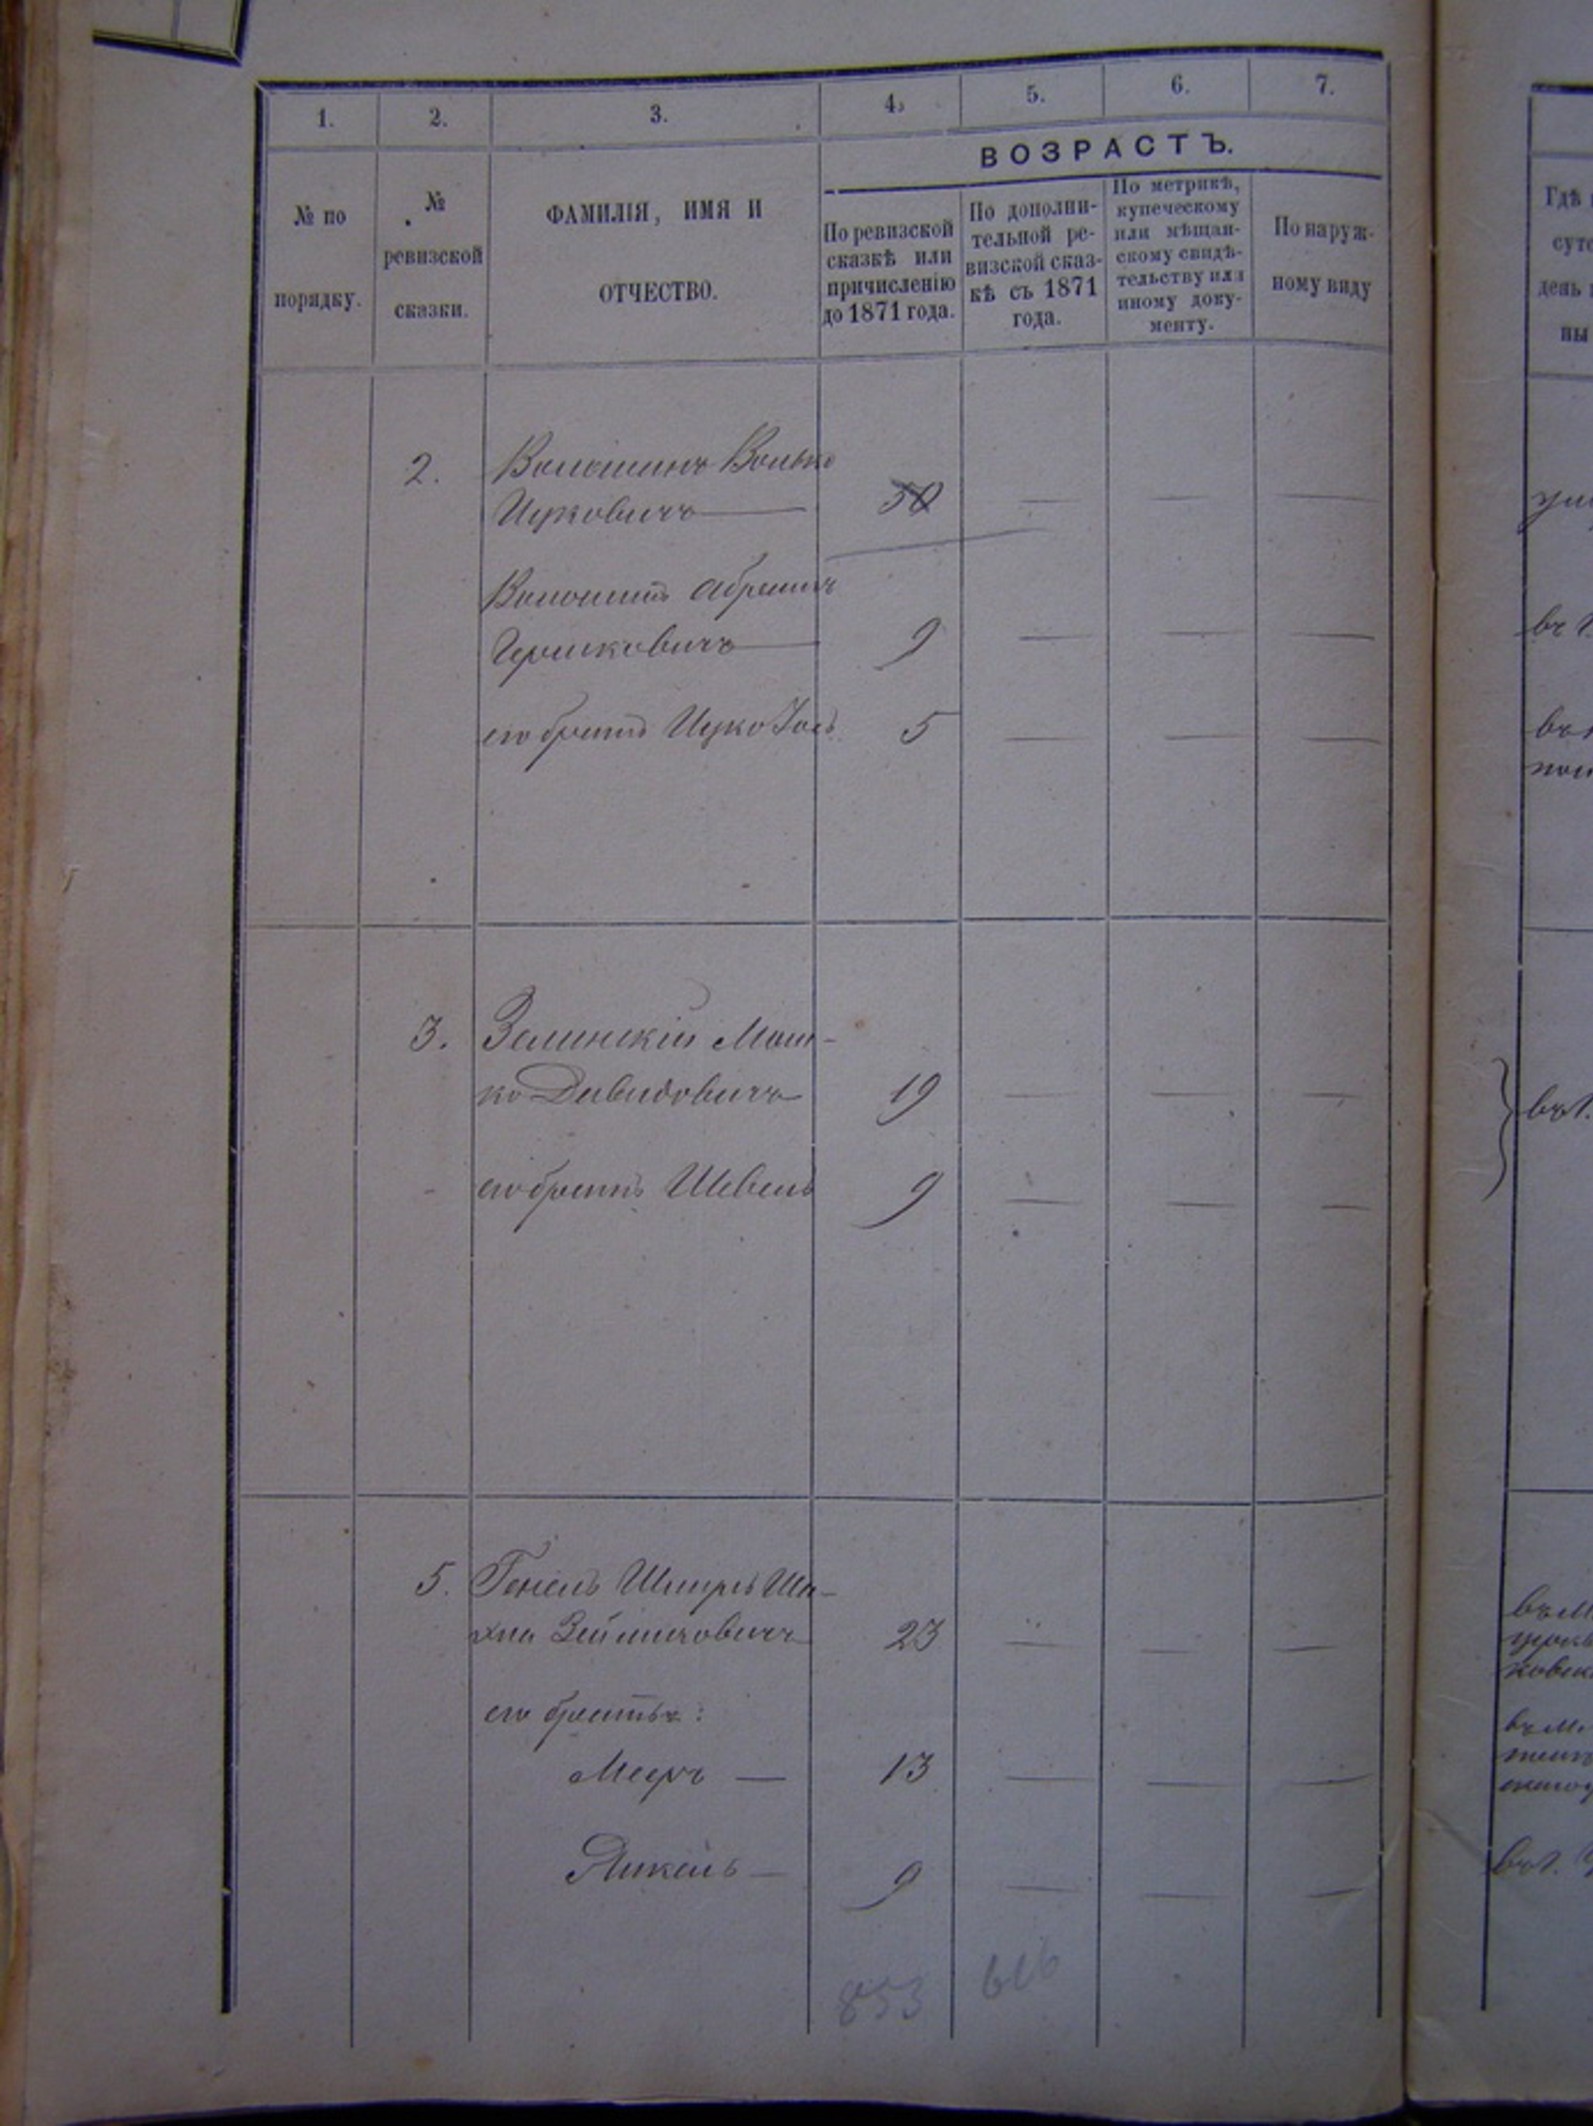 1. 2. 3. 4. 5. 6. 7.
ВОЗРАСТЪ.
№ по
порядку.
№
ревизской
сказки.
ФАМИЛІЯ, ИМЯ И
ОТЧЕСТВО.
По ревизской
сказкѣ или
причисленію
до 1871 года.
По дополни-
тельной ре-
визской сказ-
кѣ съ 1871
года.
По метрикѣ,
купеческому
или мѣщан-
скому свидѣ-
тельству или
иному доку-
менту.
По наруж-
ному виду
2. Волошинъ Волько
Ицковичъ — 50 — — —
Волошинъ Абрамъ
Гершковичъ — 9 — — —
его братъ Ицко 5 — — —
3. Залинскій Мош-
ко Давидовичъ 19 — — —
его братъ Шевель 9 — — —
5. Шмуль Ша-
хна 23 — — —
его братья:
Мееръ — 13 — — —
Янкель — 9 — — —
853 616
Гдѣ
день
ны
въ